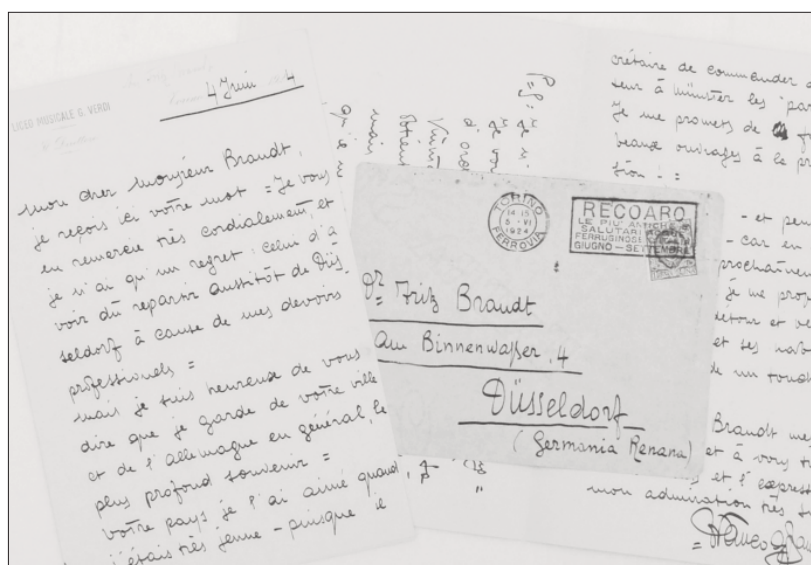 LICEO MUSICALE G. VERDI
4 Juin
mon cher monsieur Brandt,
je reçois ici votre mot = Je vous
en remercie très cordialement, et
je n'ai qu'un regret, celui d'a
voir dû repartir aussitôt de Düs
seldorf à cause de mes devoirs
professionels =
mais je suis heureux de vous
dire que je garde de votre ville
et de l'allemagne en général, le
plus profond souvenir =
votre pays je l'ai aimé quand,
j'étais très jeune - puisque je
P.S. = Je
mais
TORINO
14 15
5 · VI
1924
FERROVIA
RECOARO
LE PIÙ ANTICHE
SALUTARI ACQUE
FERRUGINOSE
GIUGNO - SETTEMBRE
Dr Fritz Brandt
am Binnenwaßer, 4
Düsseldorf
(Germania Renana)
crétaire de commander
seur à münster les
Je me promets de
beaux ouvrages à la
tion - =
- et
- car en
prochaine
je me
détour et
et ses
de un
Brandt
et à vous
et l'express
mon admiration très